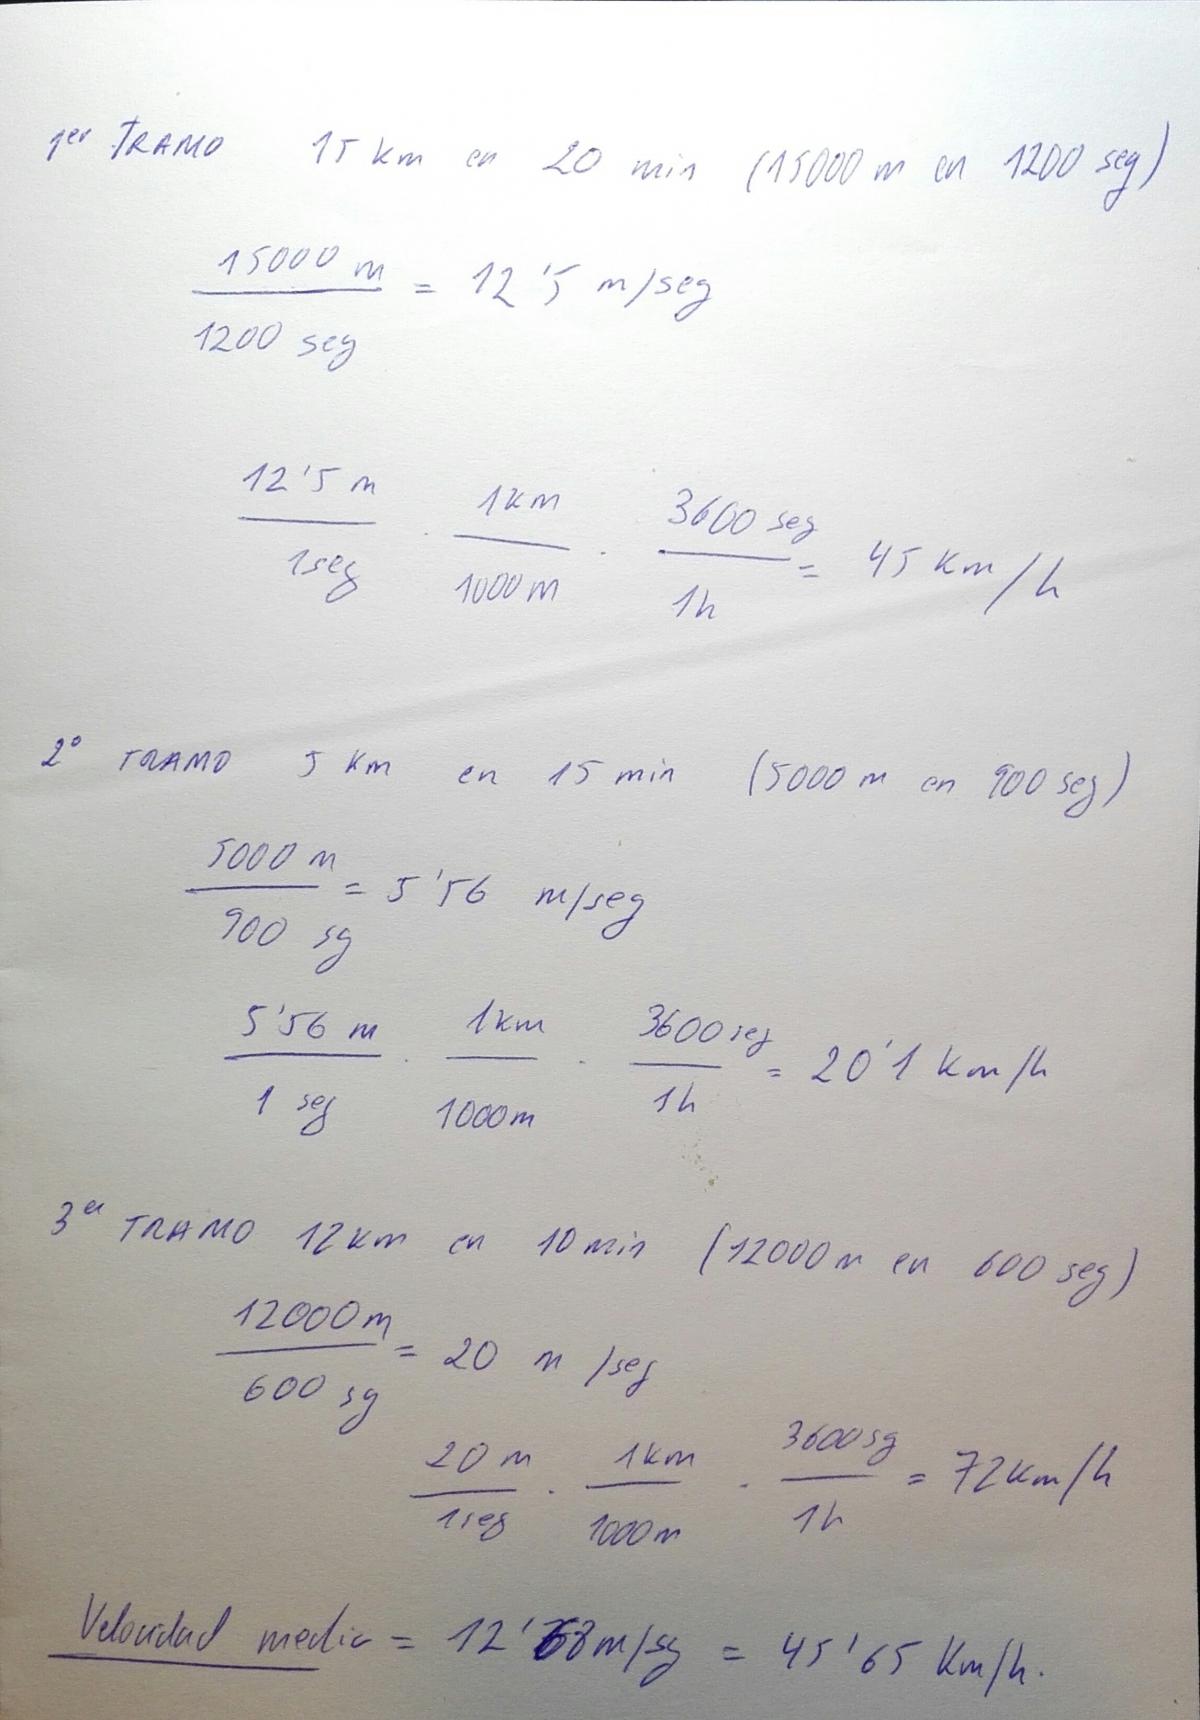 1er TRAMO 15 km en 20 min (15000 m en 1200 seg)
15000 m
1200 seg
= 12'5 m/seg
12'5 m
1seg
. 1km
1000m
. 3600 seg
1h
= 45 km/h
2º TRAMO 5 km en 15 min (5000 m en 900 seg)
5000 m
900 sg
= 5'56 m/seg
5'56 m
1 seg
. 1km
1000m
. 3600 seg
1h
= 20'1 km/h
3er TRAMO 12 km en 10 min (12000m en 600 seg)
12000m
600 sg
= 20 m/seg
20 m
1seg
. 1km
1000m
. 3600sg
1h
= 72km/h
Velocidad media = m/sg = 45'65 Km/h.